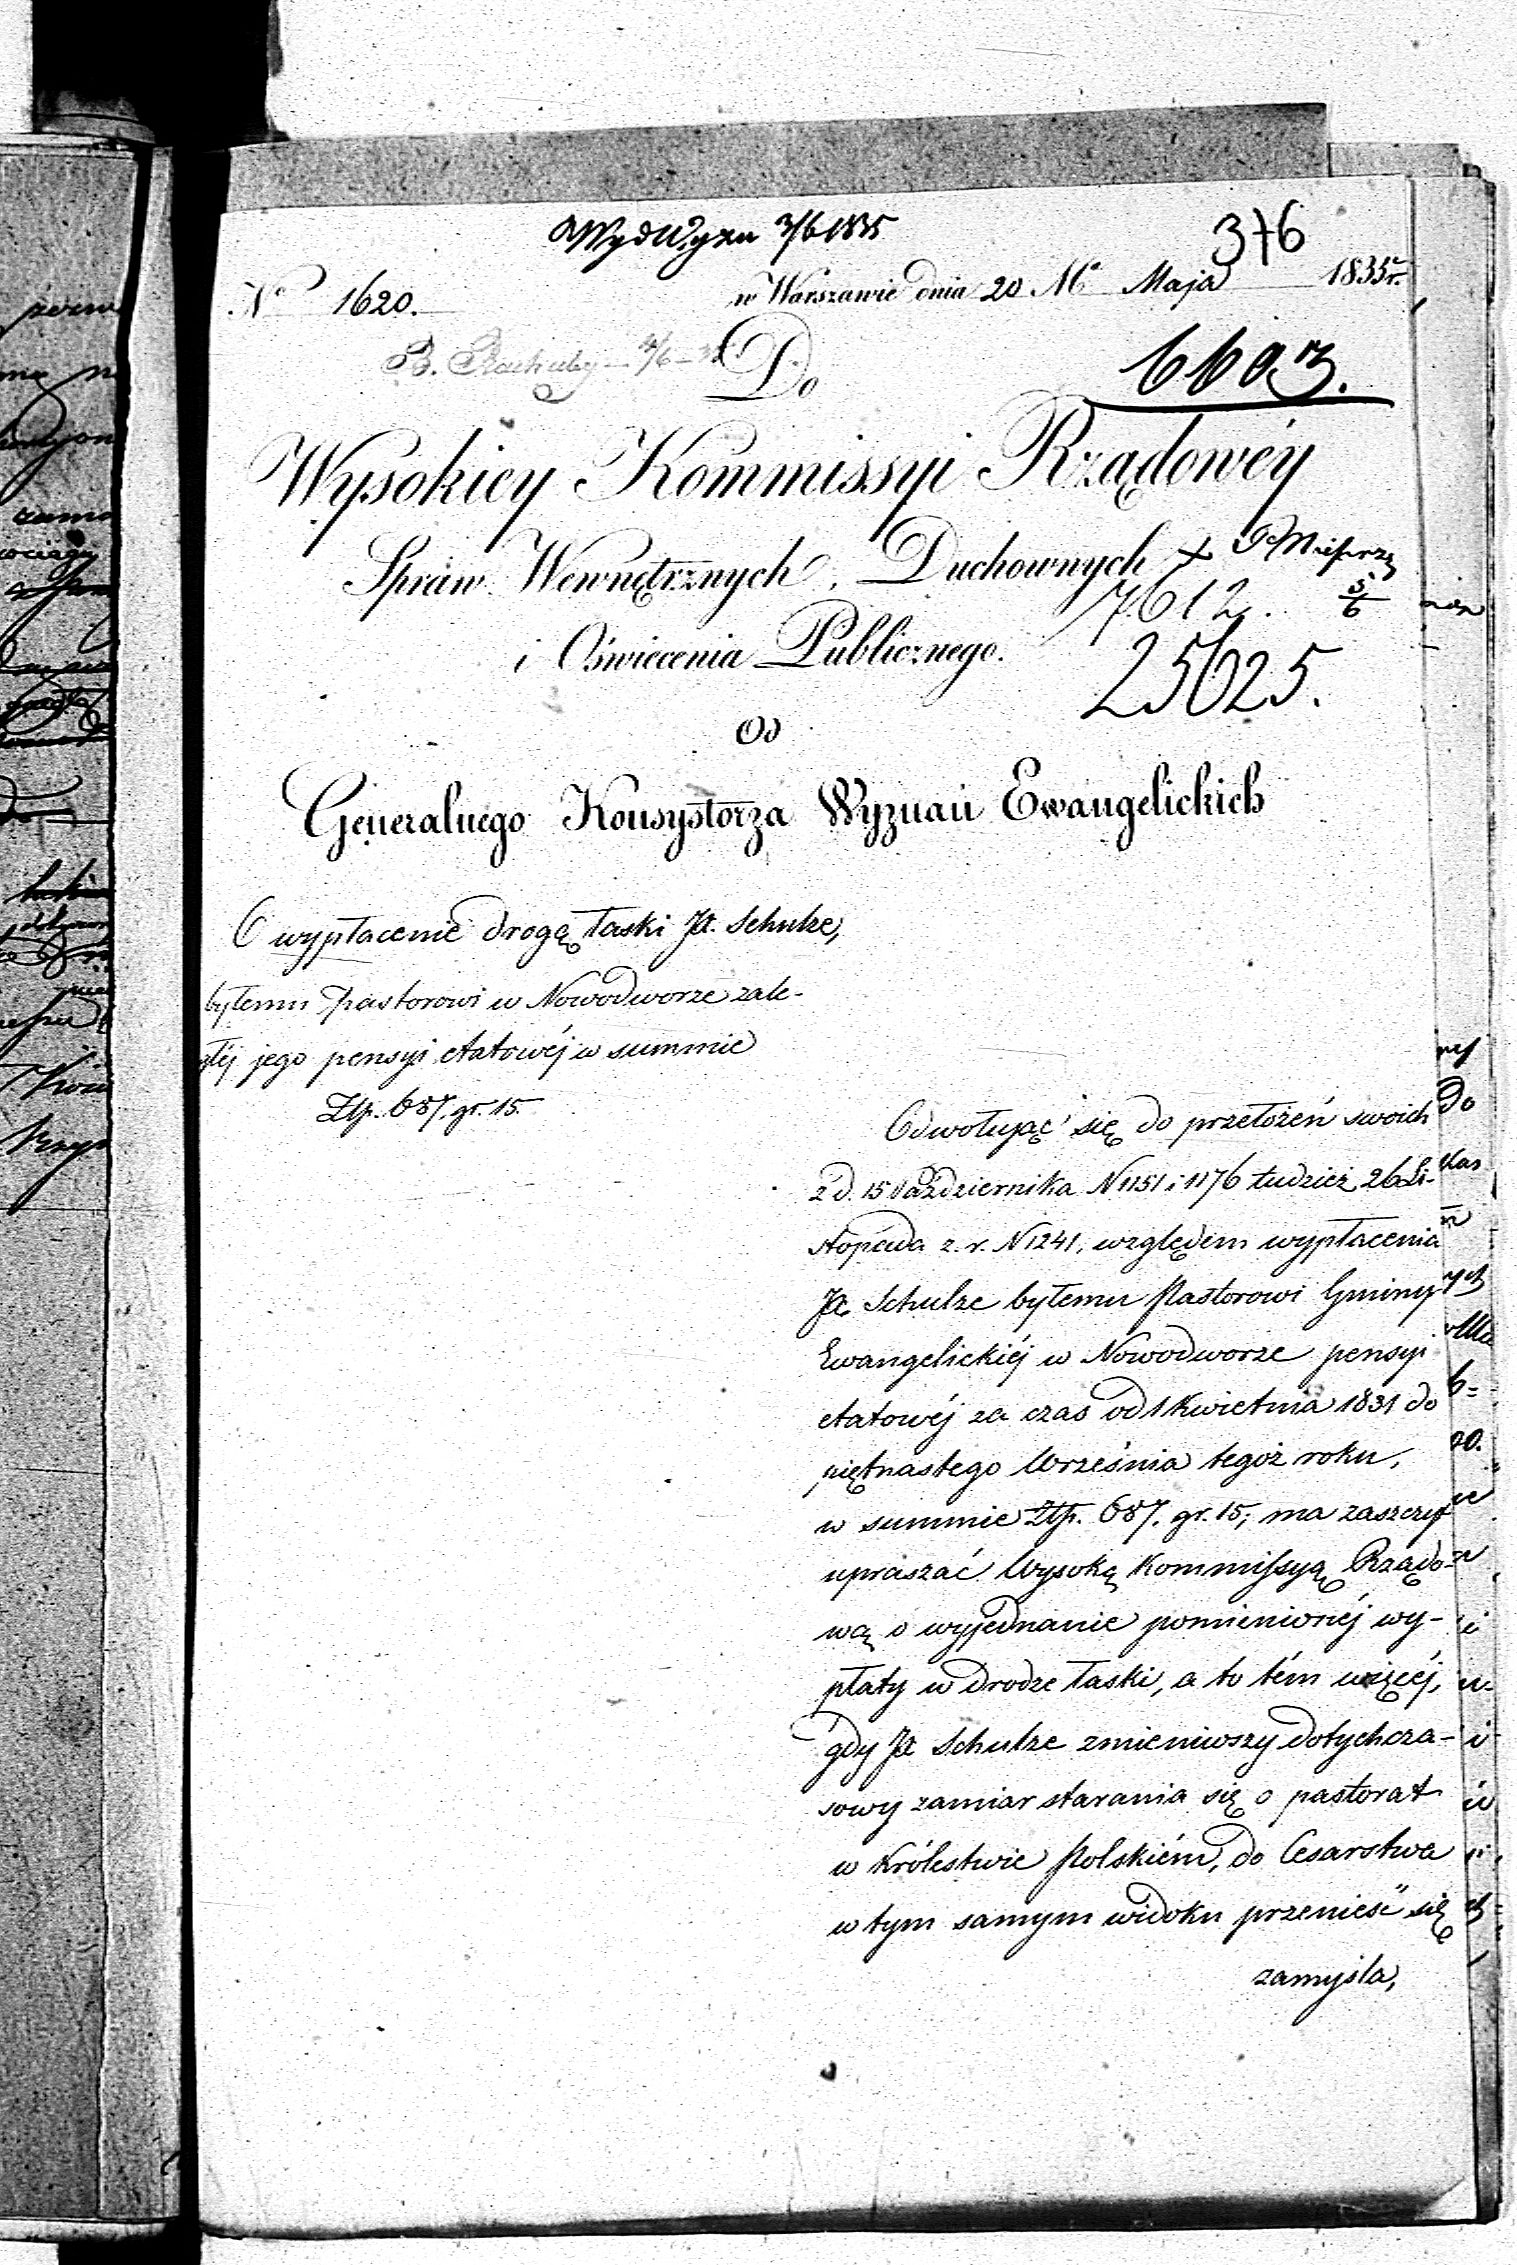 376
No 1620.
w Warszawie dnia 20 Mca Maja 1835r.
B. Rachuby
Do
6603.
Wysokiey Kommissyi Rządowéy
Spraw Wewnętrznych, Duchownych
7612. 5/6
i Oświecenia Publicznego.
25625.
Od
Generalnego Konsystorza Wyznań Ewangelickich
O wypłacenie drogą łaski JX. Schulze,
byłemu Pastorowi w Nowodworze zale-
głéj jego pensyi etatowéj w summie
Złp. 687. gr. 15.
Odwołując się do przełożeń swoich
z d. 15 Października N 1151 i 1176 tudzież 26 Li-
stopada z. r. N 1241, względem wypłacenia
JX. Schulze byłemu Pastorowi Gminy
Ewangelickiéj w Nowodworze pensyi
etatowéj za czas od 1 Kwietnia 1831 do
piętnastego Września tegoż roku,
w summie Złp. 687. gr. 15; ma zaszczyt
upraszać Wysoką Kommissyą Rządo-
wą o wyjednanie pomienionéj wy-
płaty w drodze łaski, a to tém więcéj,
gdy JX Schulze zmieniwszy dotychcza-
sowy zamiar starania się o pastorat
w Królestwie Polskiém, do Cesarstwa
w tym samym widoku przenieść się
zamyśla,